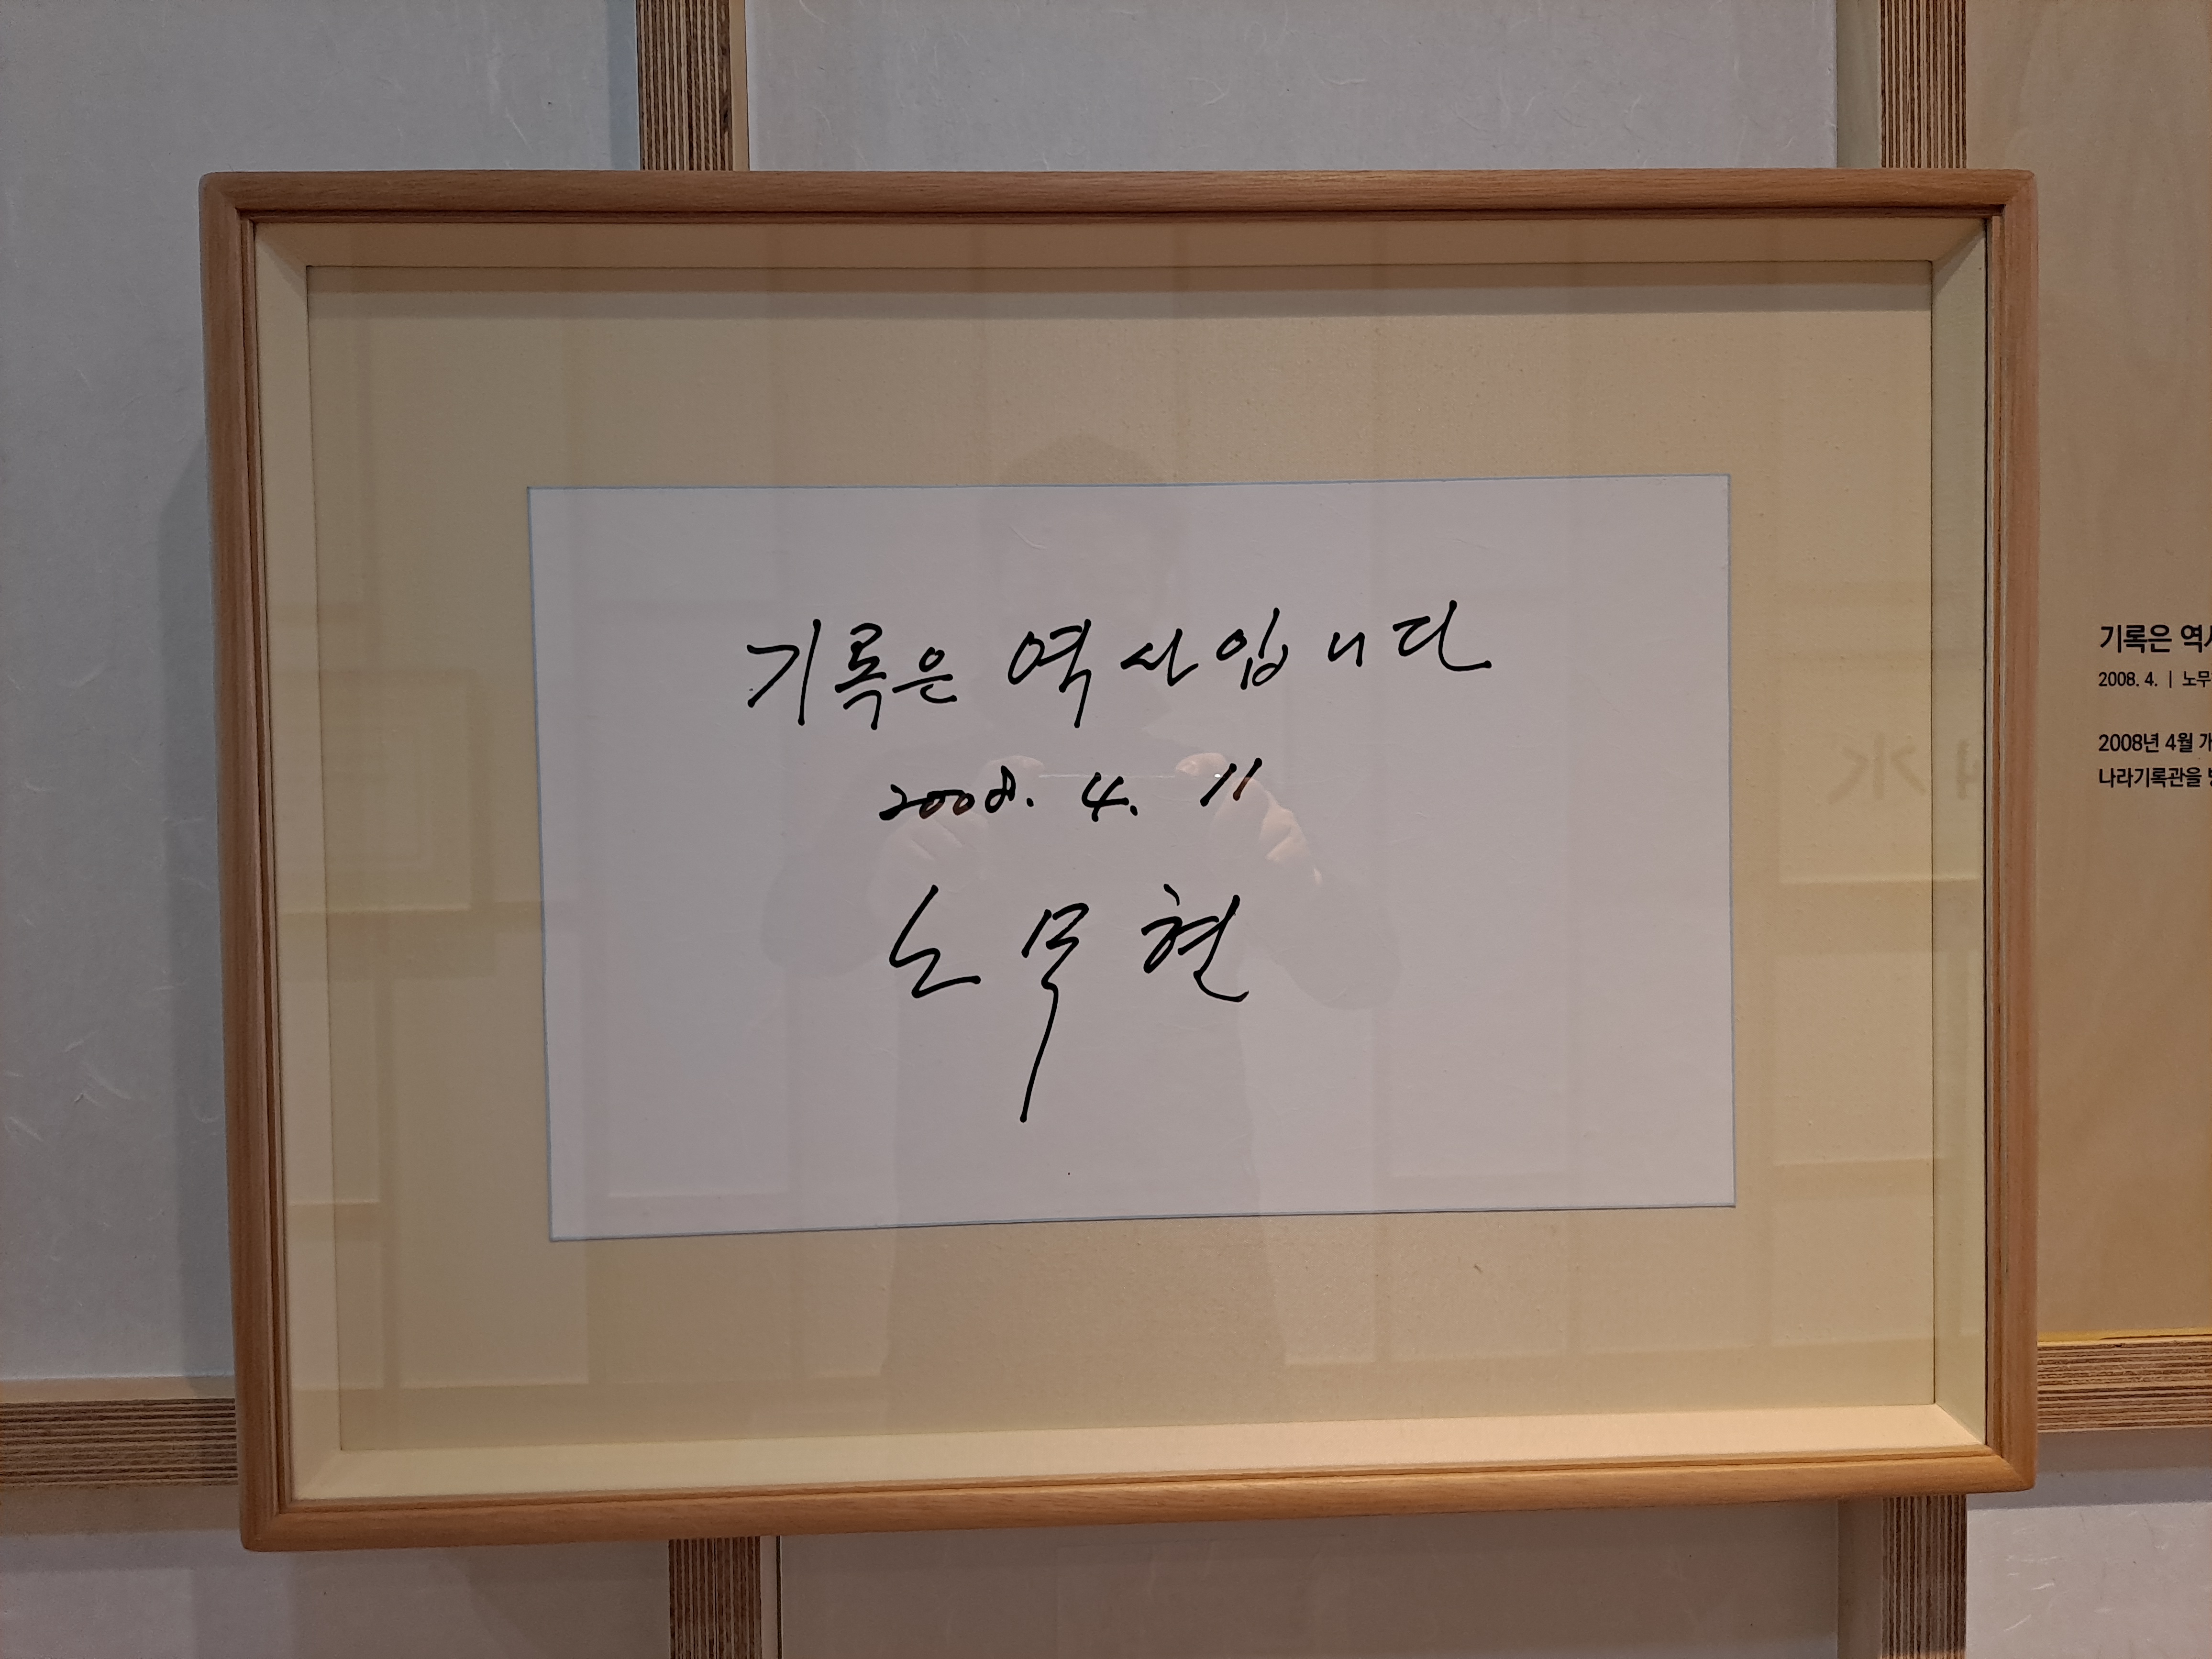 기록은 역사입니다
2008. 4. 11
노무현
기록은
2008. 4. | 노무
2008년 4월
나라기록관을